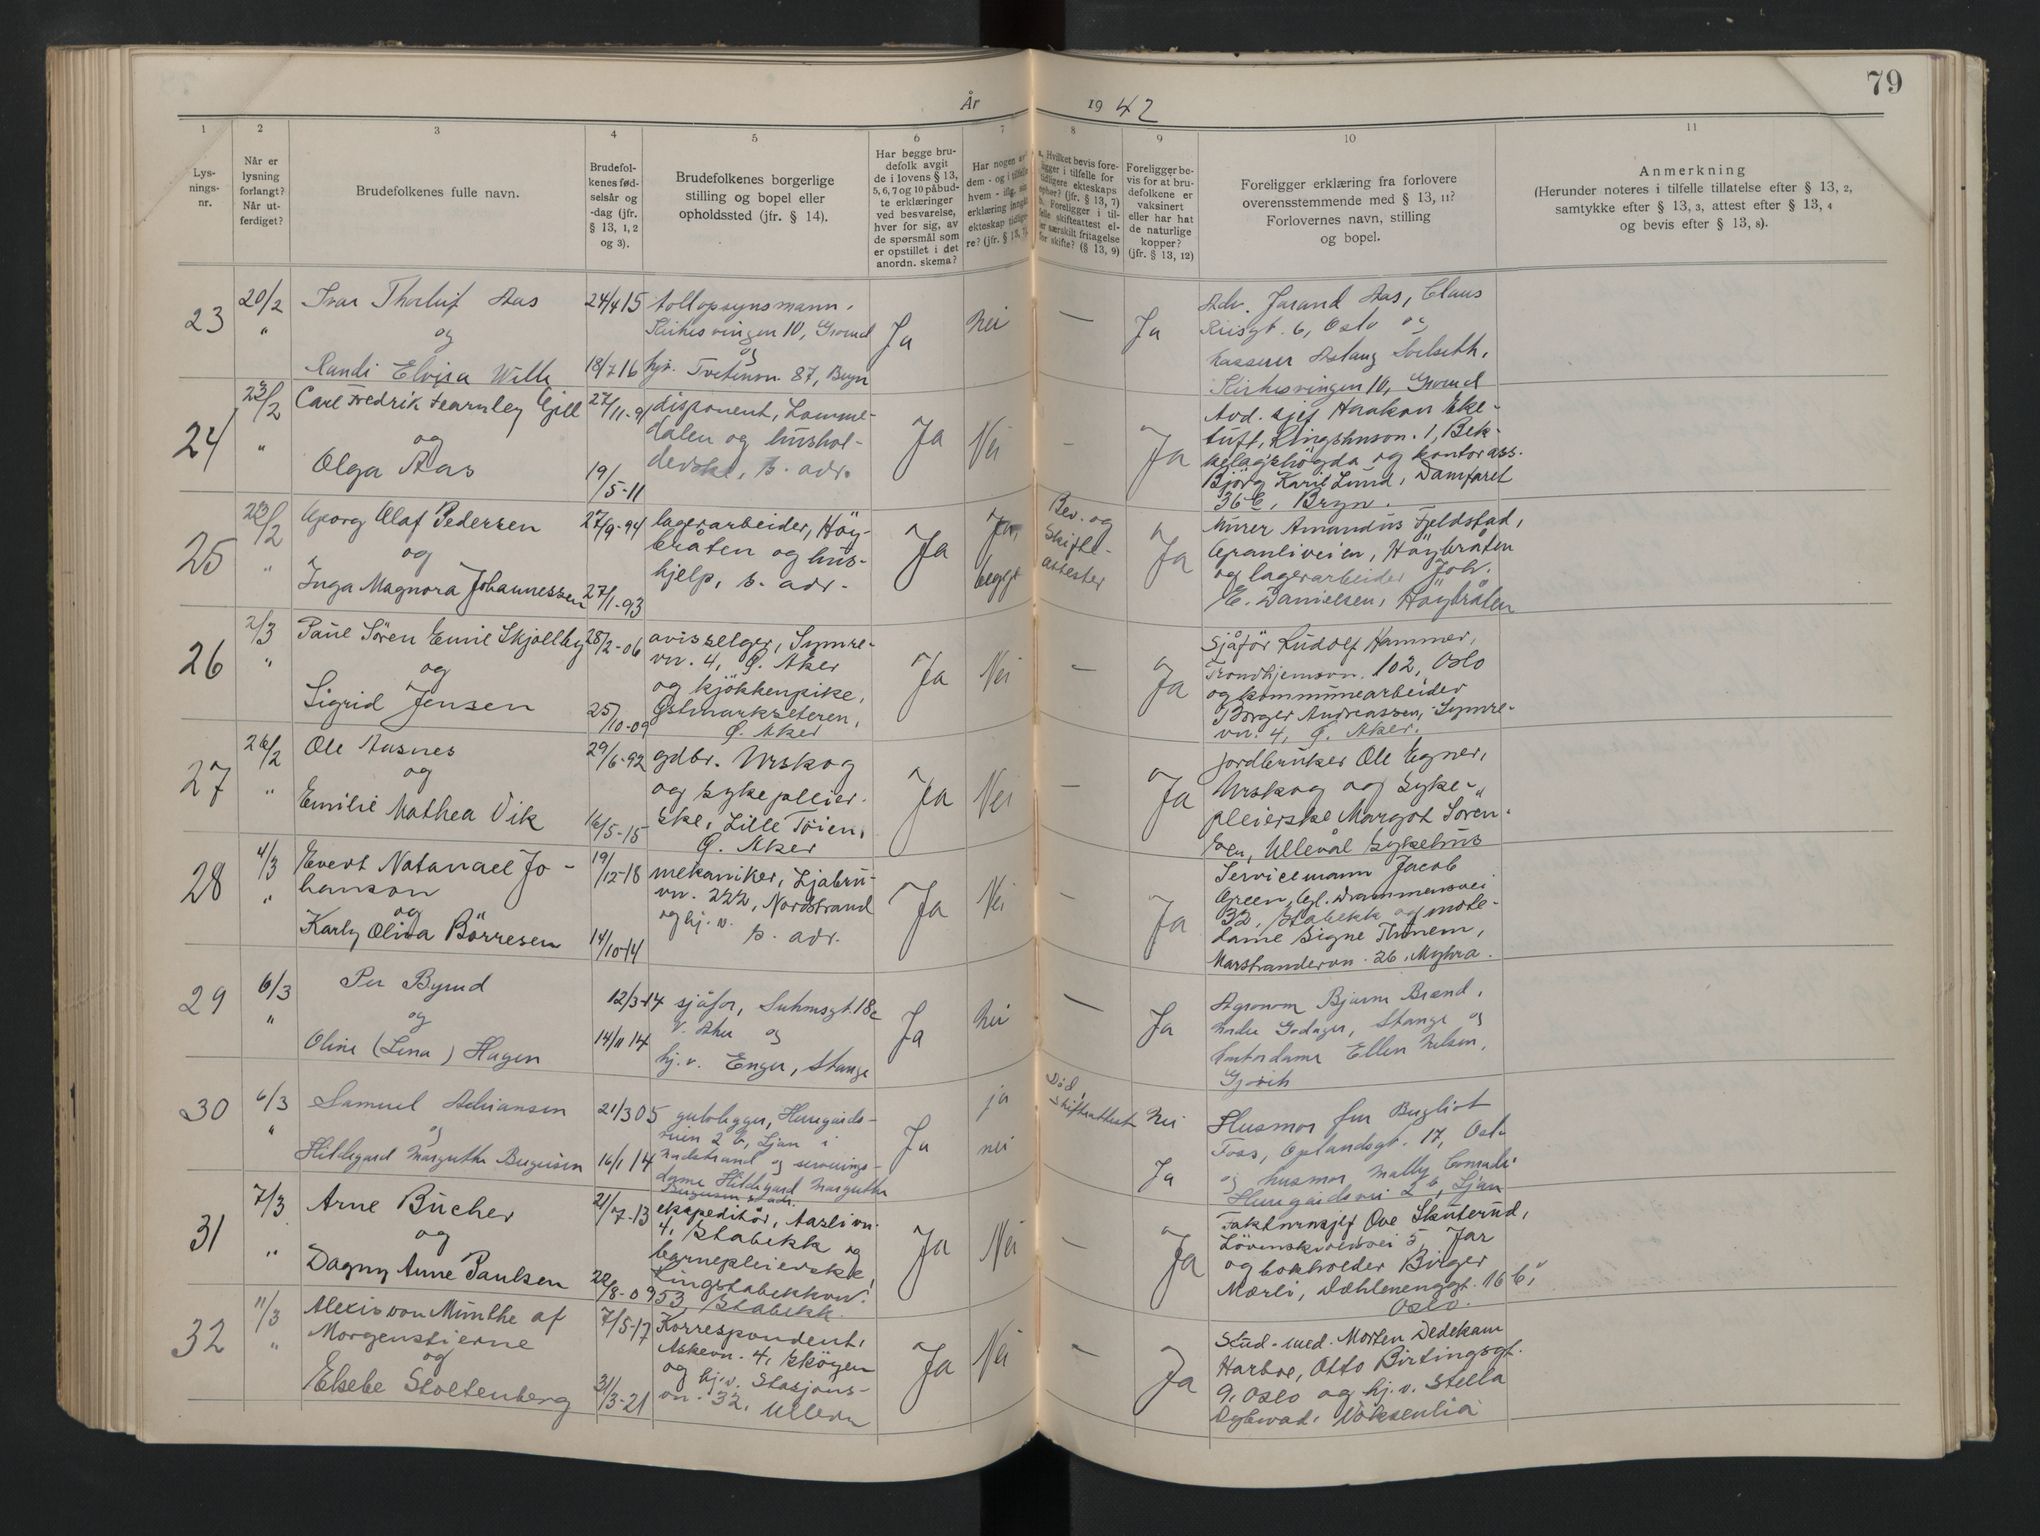 79
År 1942
1 2 3 4 5 6 7 8 9 10 11
Lys-
nings-
nr.
Når er
lysning
forlangt?
Når ut-
ferdiget?
Brudefolkenes fulle navn.
Brudefol-
kenes fød-
selsår og
-dag (jfr.
§ 13, 1, 2
og 3).
Brudefolkenes borgerlige
stilling og bopel eller
opholdssted (jfr. § 14).
Har begge bru-
defolk avgit
de i lovens § 13,
5, 6, 7 og 10 påbud-
te erklæringer
ved besvarelse,
hver for sig, av
de spørsmål som
er opstillet i det
anordn. skema?
Har nogen av
dem - og i tilfelle
hvem - iflg. sin
erklæring inngått
ekteskap tidlige-
re? (jfr. § 13, 7).
a. Hvilket bevis fore-
ligger i tilfelle for
tidligere ekteskaps
ophør? (jfr. § 13, 7)
b. Foreligger i til-
felle skifteattest el-
ler særskilt fritagelse
for skifte? (§ 13, 9)
Foreligger be-
vis for at bru-
defolkene er
vaksinert
eller har hat
de naturlige
kopper?
(jfr. § 13, 12)
Foreligger erklæring fra forlovere
overensstemmende med § 13, 11?
Forlovernes navn, stilling
og bopel.
Anmerkning
(Herunder noteres i tilfelle tillatelse efter § 13, 2,
samtykke efter § 13, 3, attest efter § 13, 4
og bevis efter § 13, 8).
23
20/2
"
Ivar Thorleif Aas
og
Randi Elvira Wille
24/4 15
18/7 16
tollopsynsmann,
Kirkesvingen 10, Grorud
og
hjv. Tvetenvn. 87, Bryn
Ja
Nei
—
Ja
Adv. Jarand Aas, Claus
Riisgt. 6, Oslo og
kasserer Aslaug Solseth,
Kirkesvingen 10, Grorud
24
23/2
"
Carl Fredrik Fearnley Gjell
og
Olga Aas
27/11-91
19/5-11
disponent, Lomme-
dalen og hushol-
derske, s. adr.
Ja
Nei
-
Ja
Avd. sjef Haakon Eke-
tuft, Ringshusvn. 1, Bek-
kelagshögda og kontorass.
Björg Karil Lund, Damfaret
36 E, Bryn.
25
23/2
"
Georg Olaf Pedersen
og
Inga Magnora Johannessen
27/9-94
27/1-93
lagerarbeider, Höy-
bråten og hus-
hjelp, s. adr.
Ja
Ja,
begge
Bev. og
skifte-
attester
Ja
Murer Amandus Fjeldstad,
Granliveien, Höybråten
og lagerarbeider Joh.
E. Danielsen, Höybråten
26
2/3
"
Paul Sören Emil Skjellby
og
Sigrid Jensen
28/2-06
25/10-09
avisselger, Symre-
vn. 4, Ø. Aker
og kjökkenpike,
Østmarkseteren,
Ø. Aker
Ja
Nei
—
Ja
Sjåför Ludolf Hammer,
Trondhjemsvn. 102, Oslo
og kommunearbeider
Borger Andreassen, Symre-
vn. 4, Ø. Aker.
27
26/2
"
Ole Aasnes
og
Emilie Mathea Vik
29/6-92
16/5-15
gdbr. Urskog
og sykepleier-
ske, Lille Töien,
Ø. Aker
Ja
Nei
-
Ja
jordbruker Ole Egner,
Urskog og syke-
pleierske Margot Sören-
sen, Ullevål sykehus
28
4/3
"
Evert Natanael Jo-
hanson
og
Karly Oliva Börresen
19/12-18
14/10-14
mekaniker, Ljabru-
vn. 222, Nordstrand
og hj. v.
s. adr.
Ja
Nei
-
Ja
Servicemann Jacob
Green, Gl. Drammensvei
32, Stabekk og mote-
dame Signe Thinem,
Marstrandervn. 26, Myhra.
29
6/3
"
Per Byrud
og
Oline (Lina) Hagen
12/3-14
14/11 14
sjåfør, Suhmsgt. 18c
V. Aker og
hj. v. Enger, Stange
Ja
Nei
—
Ja
Agronom Bjarne Brænd,
Nedre Godager, Stange og
kontordame Ellen Nelson,
Gjøvik
30
6/3
"
Samuel Adriansen
og
Hildegard Margrethe Bugisen
21/3 05
16/1 14
gulvlegger, Herregårds-
veien 2 b, Ljan i
Nordstrand og serverings-
dame Hildegard Margrethe
Ja
ja
nei
Død,
skifteattest
Nei
Ja
Husmor fru Bugliot
Foss, Oplandsgt. 17, Oslo
og husmor Mally Conradi
Herregårdsvei 2 b, Ljan
31
7/3
"
Arne Bücher
og
Dagny Anne Paulsen
21/7-13
22/8-09
ekspeditör, Aaslivn.
4, Stabekk og
barnepleierske,
Ringstabekkvn.
53, Stabekk.
Ja
Nei
-
Ja
Fakturasjef Ove Skuterud,
Lövenskioldsvei 5, Jar
og bokholder Birger
Mærli, Dæhlenenggt. 16 b,
Oslo.
32
11/3
"
Alexis von Munthe af
Morgenstierne
og
Elsebe Stoltenberg
7/5-17
31/3-21
Korrespondent,
Askevn. 4, Sköyen
og hj.v. Stasjons-
vn. 32, Ullern
Ja
Nei
-
Ja
Stud. med. Morten Dedekam
Harboe, Otto Birtingsgt.
9, Oslo og hj. v. Stella
Dybwad, Voksenlia